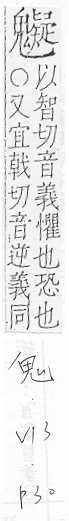 以智切音義懼也恐也
○又宜戟切音逆義同
鬼
V13
P30